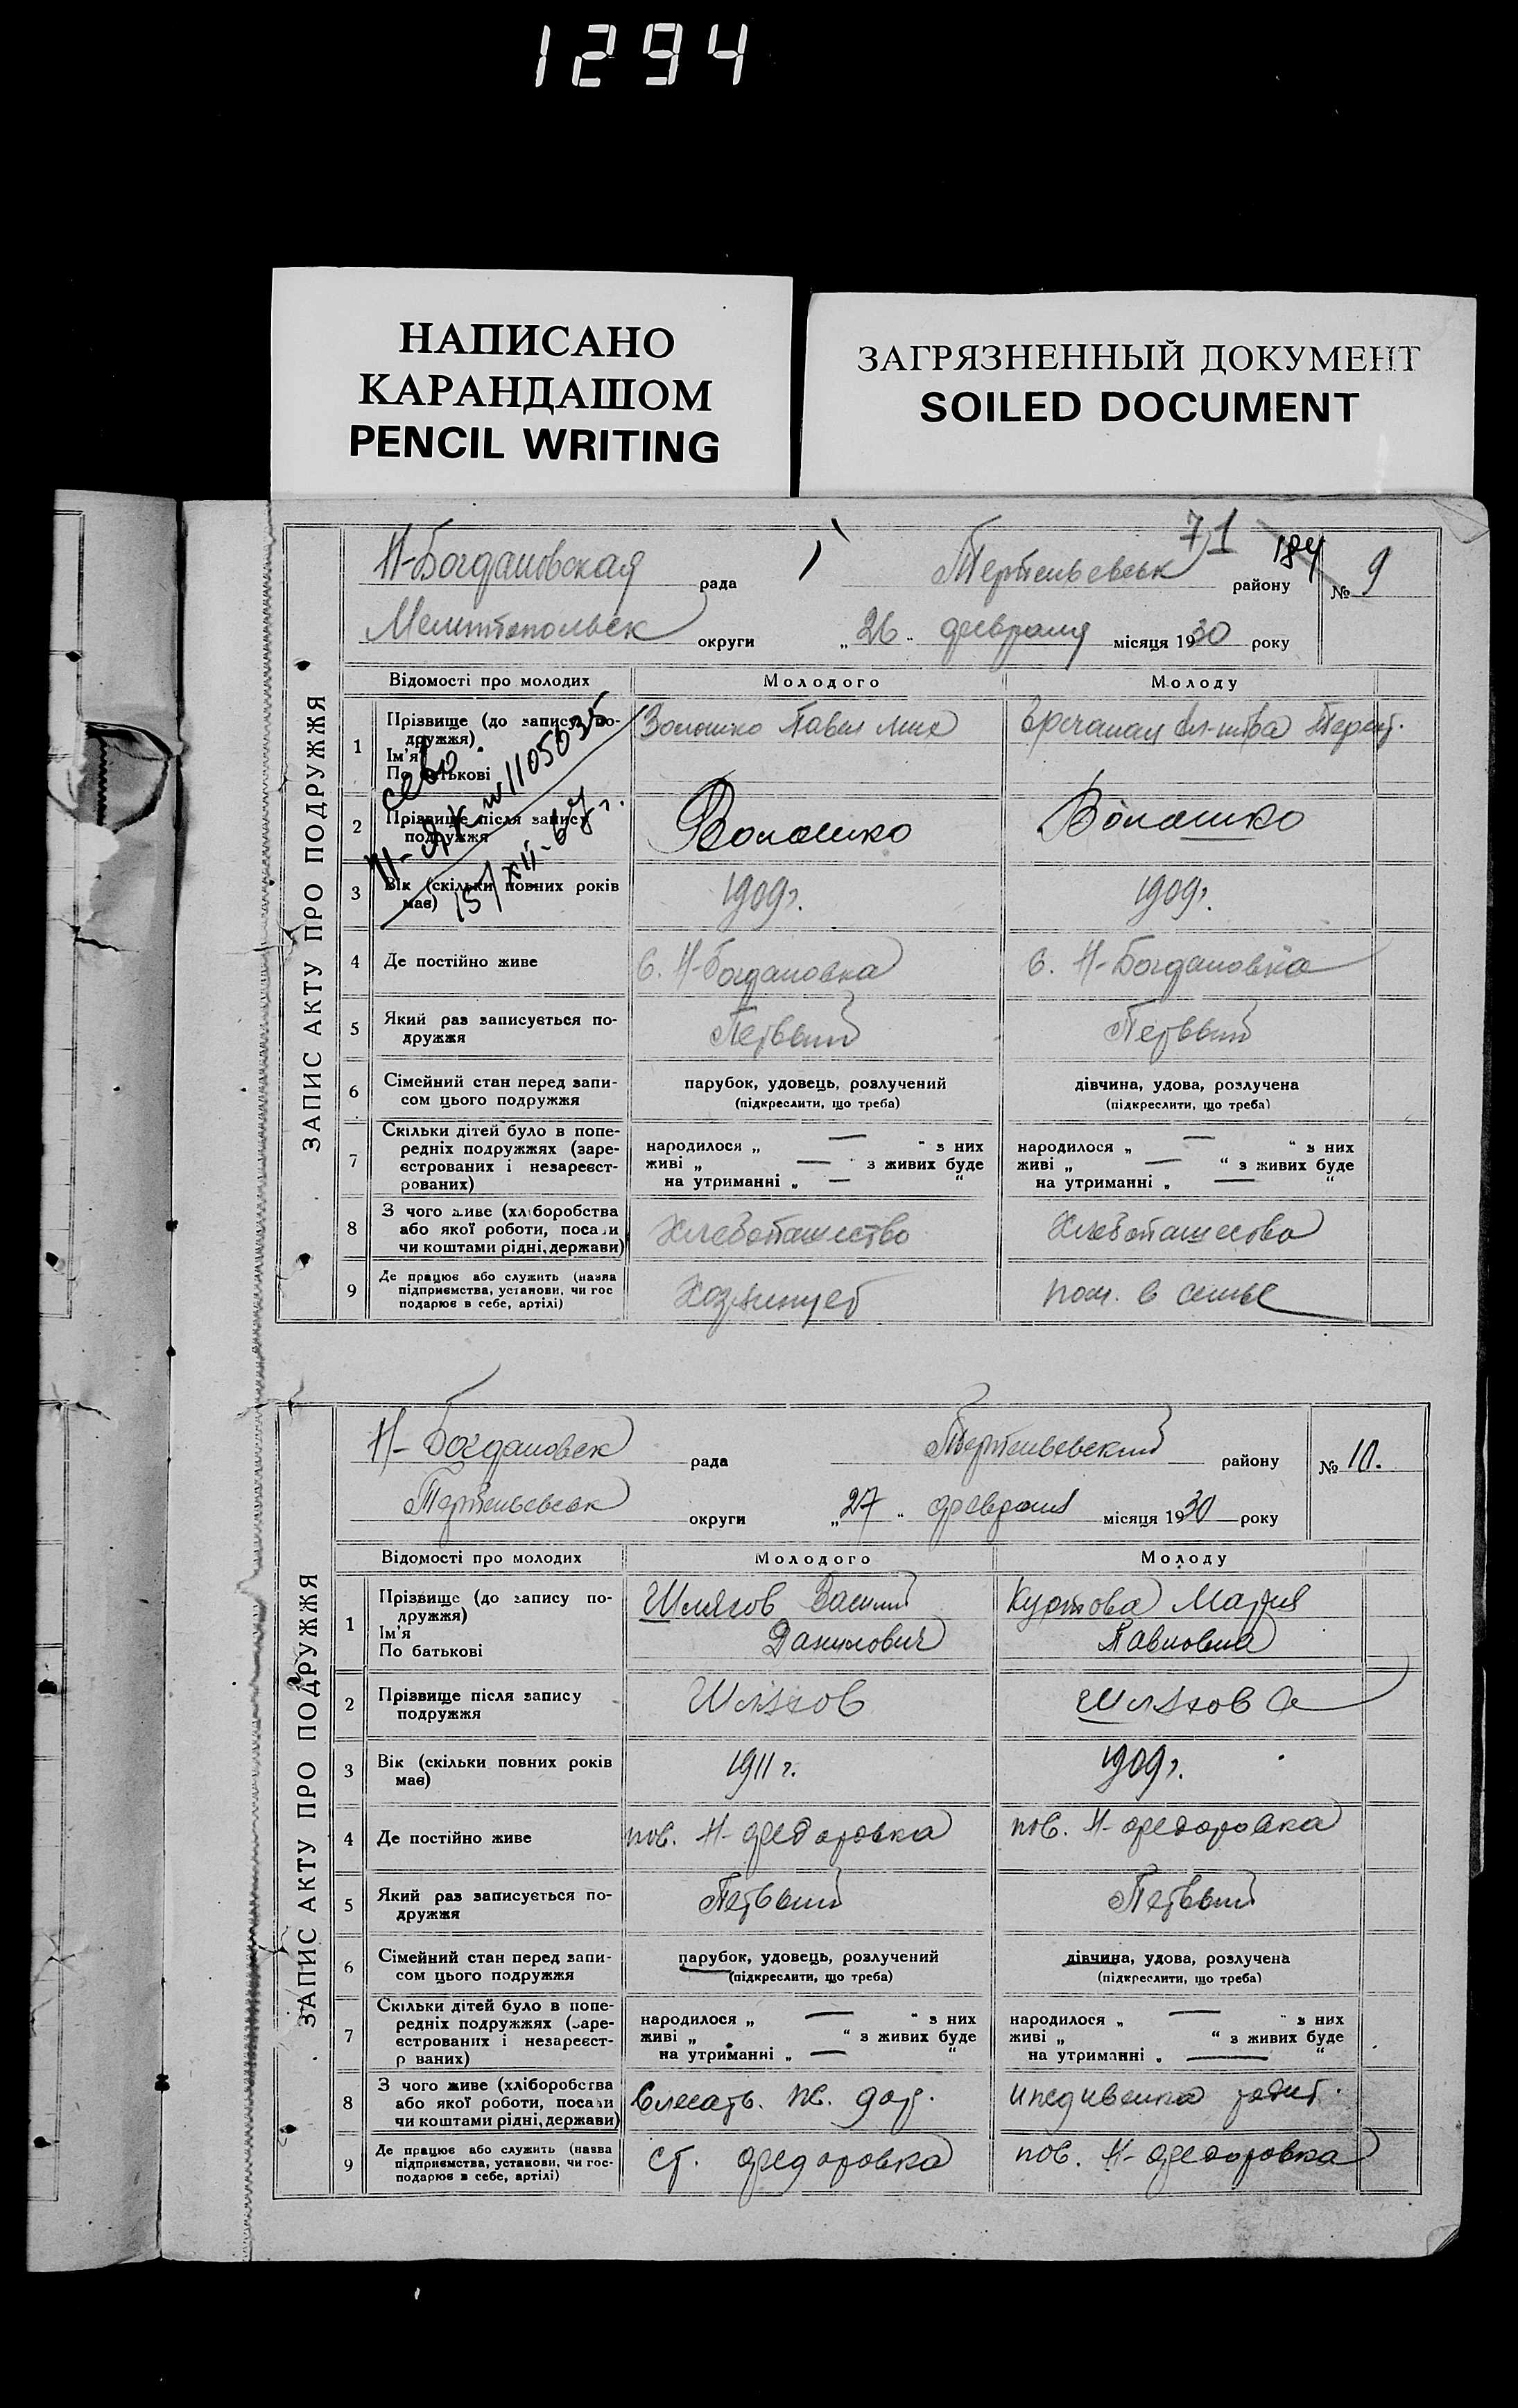 1294
НАПИСАНО
КАРАНДАШОМ
PENCIL WRITING
ЗАГРЯЗНЕННЫЙ ДОКУМЕНТ
SOILED DOCUMENT
71 184
ЗАПИС АКТУ ПРО ПОДРУЖЖЯ
Н-Богдановская рада району № 9
округи „26" февраля місяця 1930 року
Відомості про молодих Молодого Молоду
1 Прізвище (до запису по-
дружжя)
Ім'я
По батькові
Павел Мих
2 Прізвище після запису
подружжя
Волошко Волошко
№ 1105635
15/XII-67 г.
3 Вік (скільки повних років
має)
1909г. 1909г.
4 Де постійно живе с. Н-Богдановка с. Н-Богдановка
5 Який раз записується по-
дружжя
Первый Первый
6 Сімейний стан перед запи-
сом цього подружжя
парубок, удовець, розлучений дівчина, удова, розлучена
(підкреслити, що треба) (підкреслити, що треба)
7 Скільки дітей було в попе-
редніх подружжях (заре-
єстрованих і незареєст-
рованих)
народилося „ — " з них народилося „ — " з них
живі „ — " з живих буде живі „ — " з живих буде
на утриманні „ — " на утриманні „ — "
8 З чого живе (хліборобства
або якої роботи, посади
чи коштами рідні, держави)
Хлебопашество Хлебопашество
9 Де працює або служить (назва
підприємства, установи, чи гос
подарює в себе, артілі)
пом. в семье
ЗАПИС АКТУ ПРО ПОДРУЖЖЯ
Н-Богдановск рада району № 10.
округи „27" февраля місяця 1930 року
Відомості про молодих Молодого Молоду
1 Прізвище (до запису по-
дружжя)
Ім'я
По батькові
Шляхов Василий Мария
Данилович Павловна
2 Прізвище після запису
подружжя
Шляхов Шляхова
3 Вік (скільки повних років
має)
1911 г. 1909г.
4 Де постійно живе пос. Н-Федоровка пос. Н-Федоровка
5 Який раз записується по-
дружжя
Первый Первый
6 Сімейний стан перед запи-
сом цього подружжя
парубок, удовець, розлучений дівчина, удова, розлучена
(підкреслити, що треба) (підкреслити, що треба)
7 Скільки дітей було в попе-
редніх подружжях (заре-
єстрованих і незареєст-
р ваних)
народилося „ — " з них народилося „ — " з них
живі „ " з живих буде живі „ " з живих буде
на утриманні „ — " на утриманні „ — "
8 З чого живе (хліборобства
або якої роботи, посади
чи коштами рідні, держави)
Слесарь. ж. дор. иждивенка родит.
9 Де працює або служить (назва
підприємства, установи, чи гос-
подарює в себе, артілі)
ст. Федоровка пос. Н-Федоровка